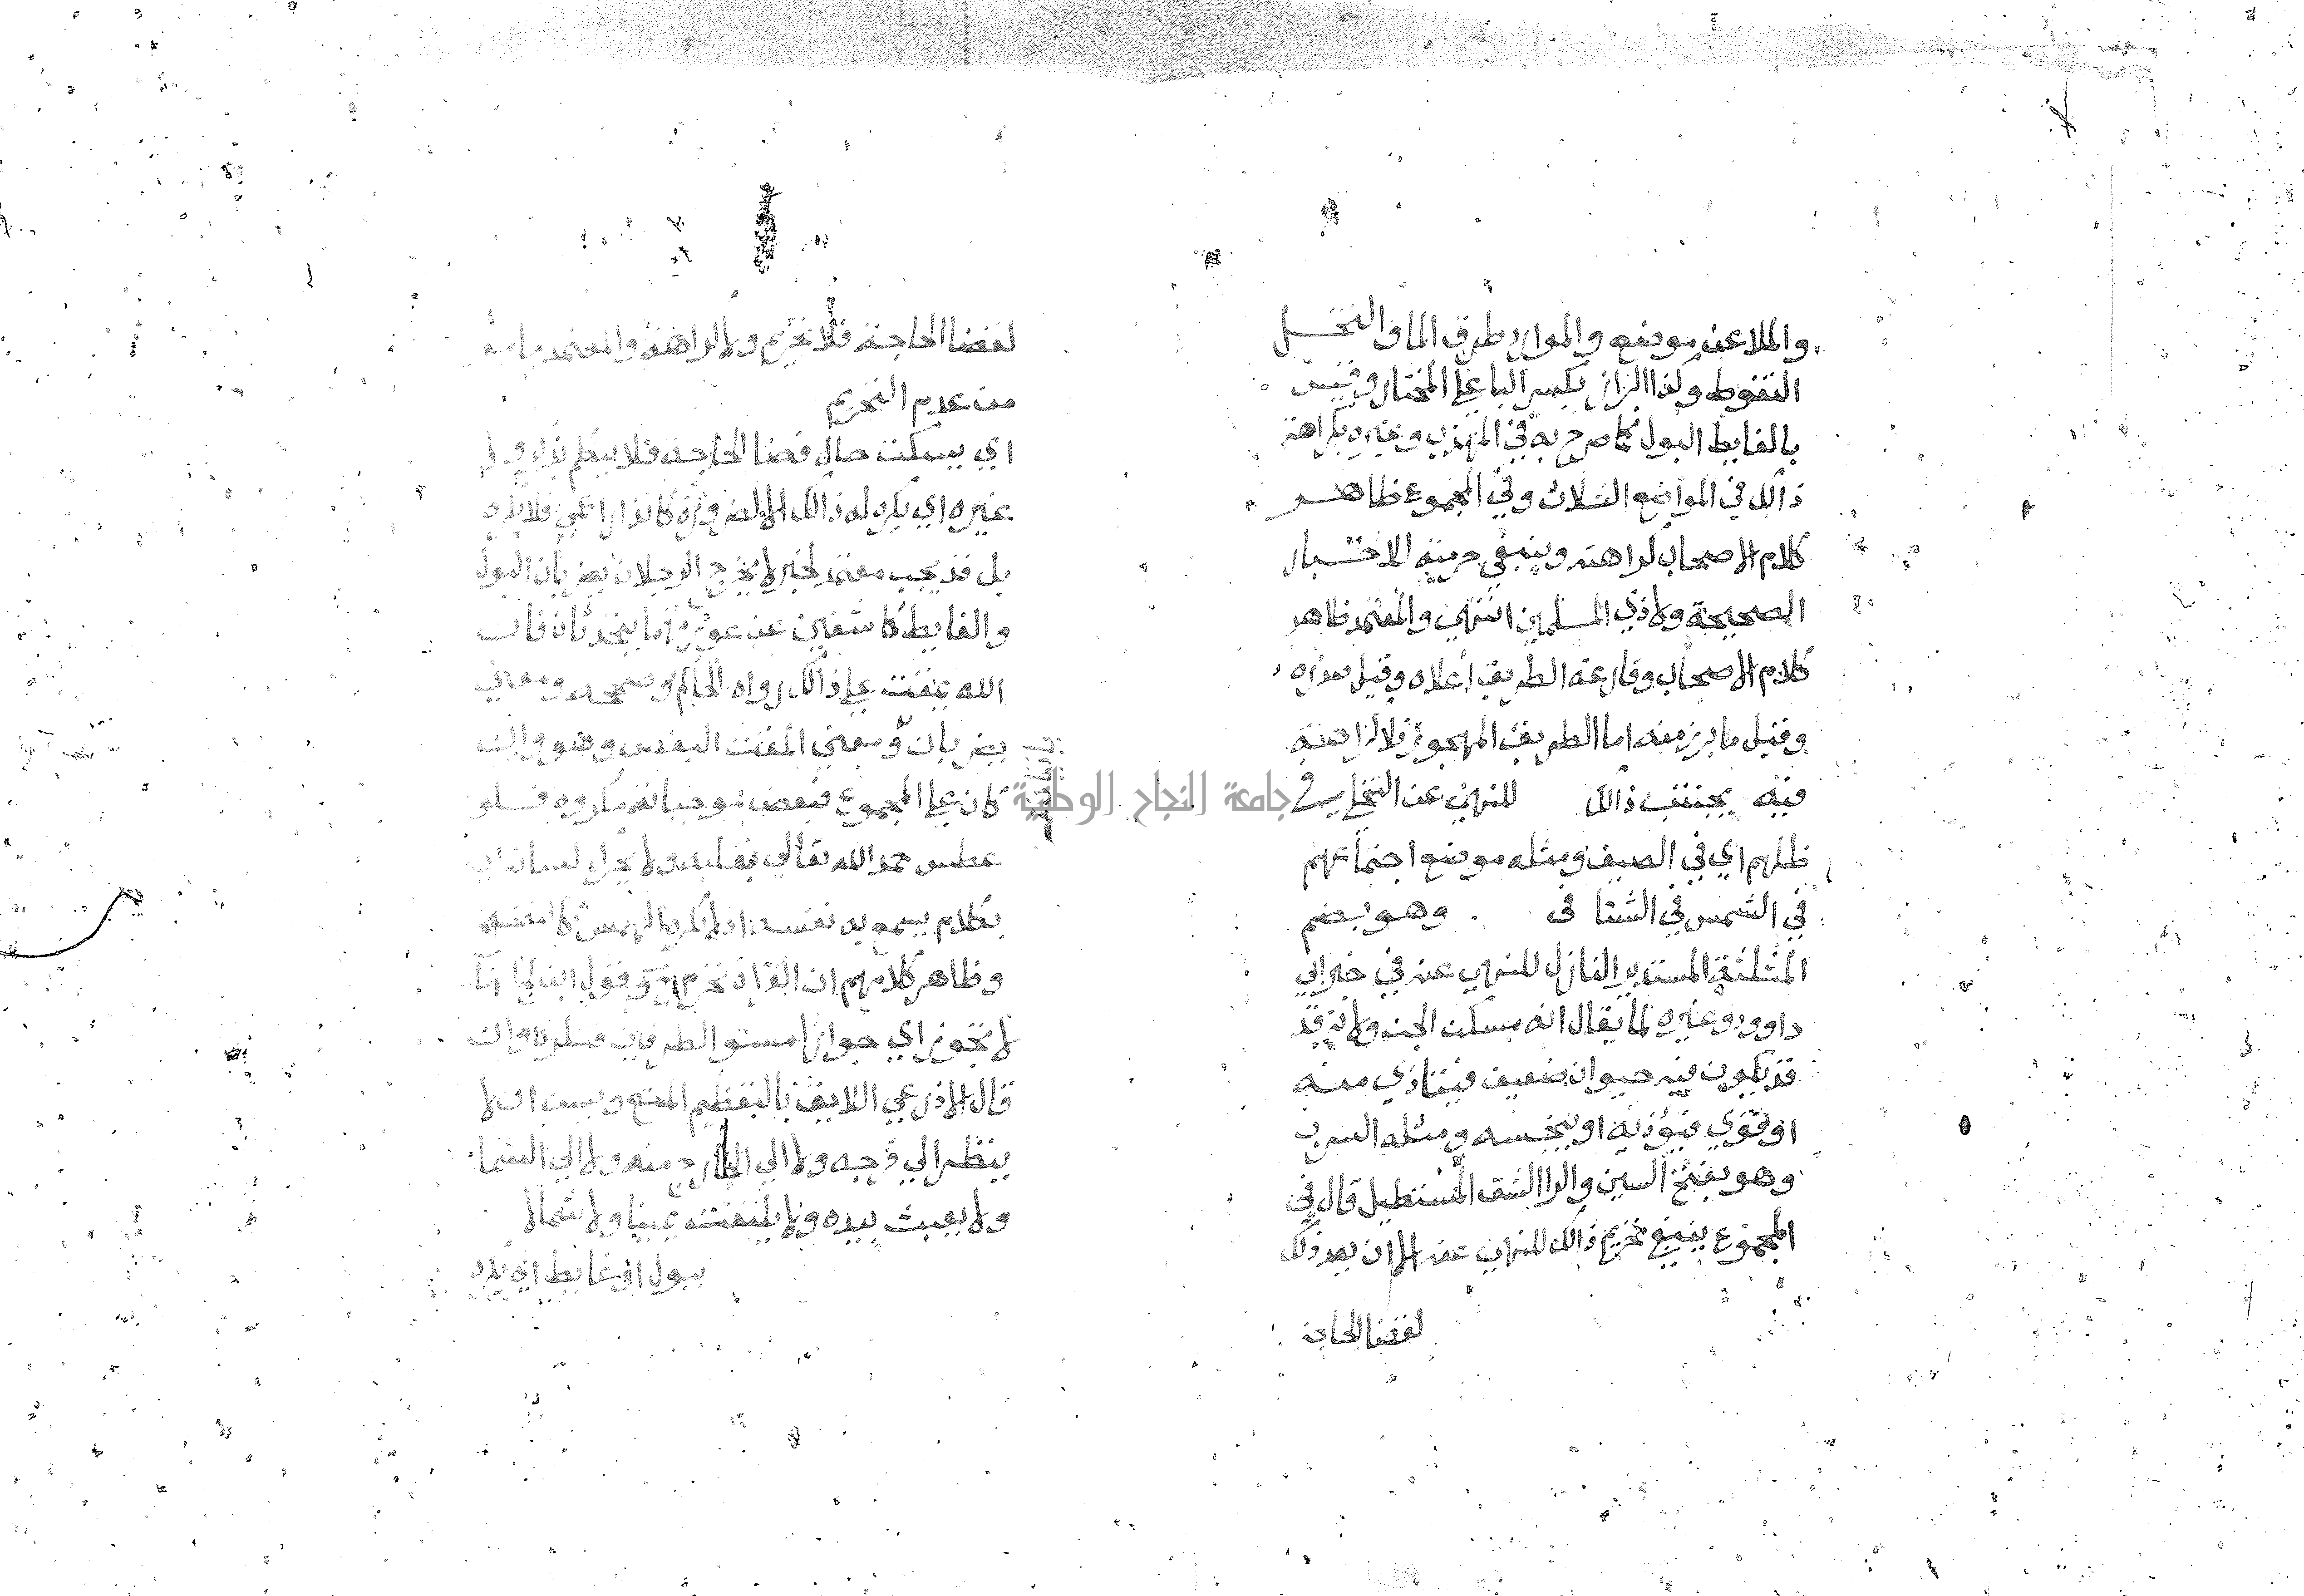 والملاعن موضع والموارد طرق الما والتخلــي
التغوط وكذا البراز بكسر البا علي المختار وقيس
بالغايط البول كما صرح به في المهذب وغيره بكراهة
ذالك في المواضع الثلاث وفي المجموع ظاهــر
كلام الاصحاب كراهته وينبغي حرمته الاخـبار
الصحيحة ولاذي المسلمين انتهي والمعتمد ظاهر
كلام الاصحاب وقارعة الطريق أعلاه وقيل صدره
وقيل ما برز منه اما الطريق المهجور فلا كراهة
فيه يجتنب ذالك للنهي عن التخلي في
ظلهم اي في الصيف ومثله موضع اجتماعهم
في الشمس في الشتا في وهو بضم
المثلثة المستدير النازل للنهي عنه في خبر ابي
داوود وغيره لما يقال انه مسكن الجن ولانه قد
قد يكون فيه حيوان ضعيف فيتاذي منه
او قوي فيؤذيه او ينجسه ومثله السرب
وهو بفتح السين والرا الشق المستطيل قال في
المجموع ينبغي تحريم ذالك للنهي عنه الا ان يعد ذلك
لقضا الحاجة
لقضا الحاجة فلا تحريم ولا كراهة والمعتمد ما مر
من عدم التحريم
اي يسكت حال قضا الحاجة فلا يتكلم بذكر ولا
غيره اي يكره له ذالك الا لضرورة كانذار اعمي فلا يكره
بل قد يجب معتمد لخبر لا يخرج الرجلان يضربان البول
والغايط كاشفين عن عورتهما يتحدثان فان
الله يمقت علي ذالك رواه الحاكم وصححه ومعني
يضربان ومعني المقت البغض وهو وان
كان علي المجموع فبعض موجباته مكروه فــلو
عطس حمد الله تعالي بقلبه ولا يحرك لسانه اي
بكلام يسمع به نفسه اذ لا يكره الهمس
وظاهر كلامهم ان القراة تحرم وقول ابن
لا تجوز اي جوازا مستو الطرفين فتكره وان
قال الاذرعي اللايق بالتعظيم المنع ويسن ان لا
ينظر الي فرجه ولا الي الخارج منه ولا الي السما
ولا يعبث بيده ولا يلتفت يمينا ولا شمالا
ببول او غايط اي يكره
جامعة النجاح الوطنية